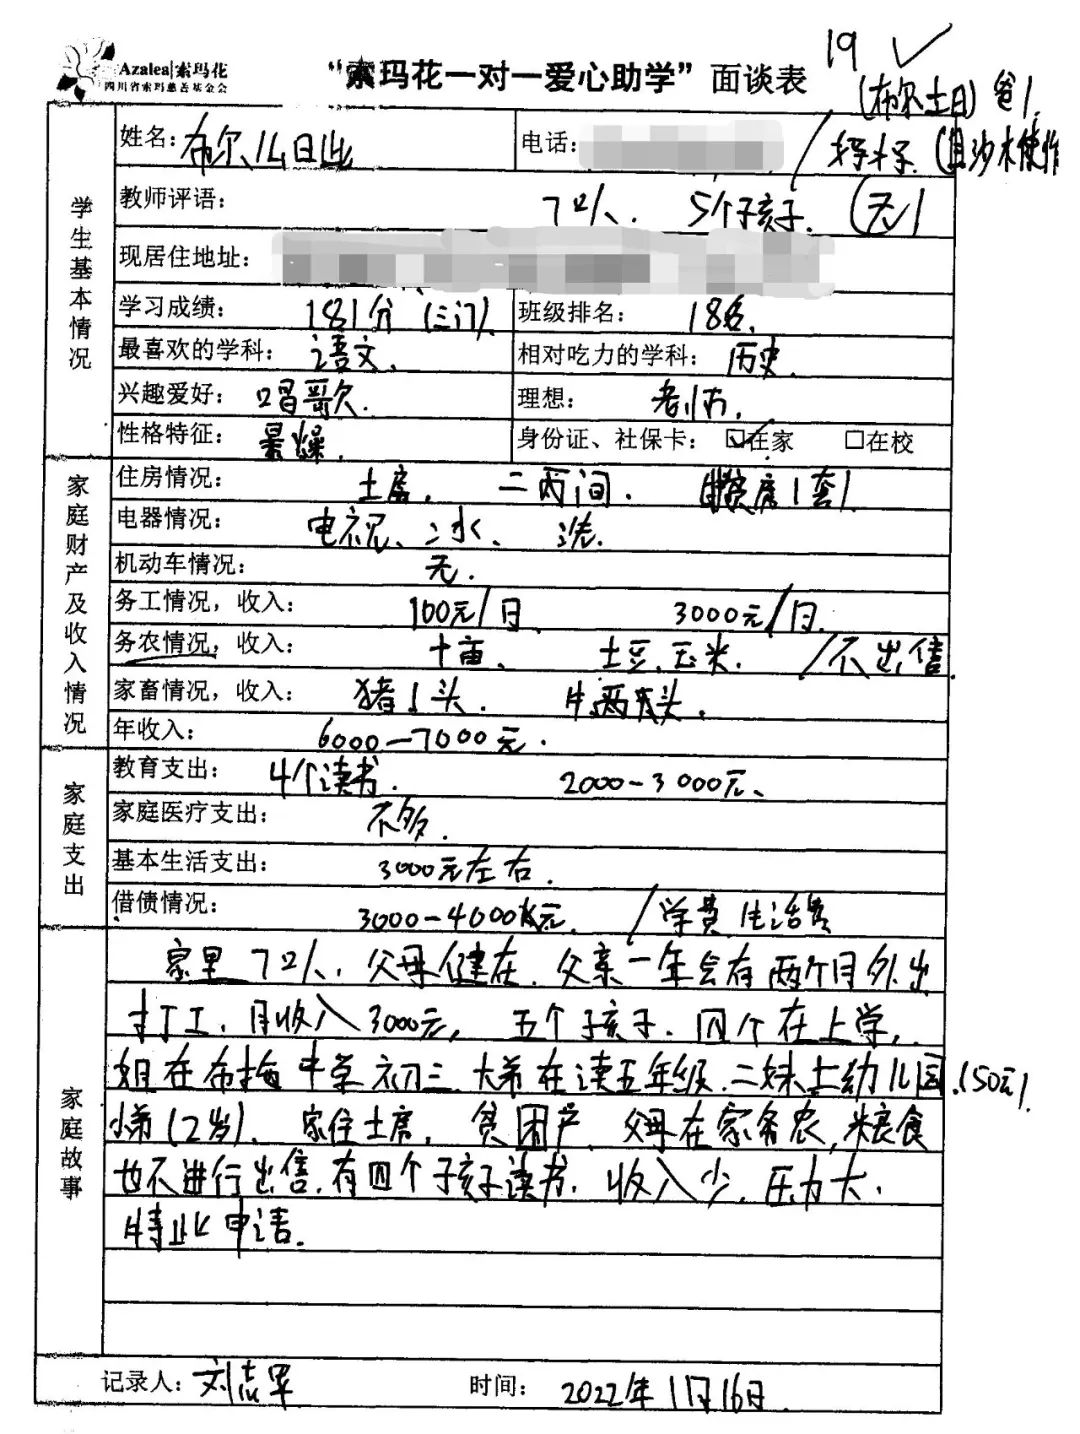 19 ✓
Azalea|索玛花
四川省索玛慈善基金会
“索玛花一对一爱心助学”面谈表
(布尔土日) 爸1.
学生基本情况
姓名: 布尔么日 电话: / (且沙木使作
教师评语: 7口人. 5个子孩子. (无)
现居住地址:
学习成绩: 181分 (三门). 班级排名: 18名.
最喜欢的学科: 语文. 相对吃力的学科: 历史.
兴趣爱好: 唱歌. 理想: 老师.
性格特征: 暴燥. 身份证、社保卡: ☑在家 □在校
家庭财产及收入情况
住房情况: 土房. 二两间. 房1套1
电器情况: 电视、冰、洗.
机动车情况: 无.
务工情况，收入: 100元/日 3000元/月.
务农情况，收入: 十亩、 土豆、玉米. /不出售.
家畜情况，收入: 猪1头. 牛两头.
年收入: 6000-7000元.
家庭支出
教育支出: 4个读书. 2000-3000元、
家庭医疗支出: 不多.
基本生活支出: 3000元左右.
借债情况: 3000-4000元. /学费 生活费
家庭故事
家里7口人. 父母健在. 父亲一年会有两个月外出
打工、月收入3000元, 五个子孩子. 四个在上学,
姐在布拖中学初三. 大弟在读五年级. 二妹上幼儿园.(50元).
小弟(2岁)、家住土房, 贫困户, 父母在家务农,粮食
也不进行出售.有四个子孩子读书. 收入少. 压力大.
特此申请.
记录人: 刘志军 时间: 2022年11月16日.